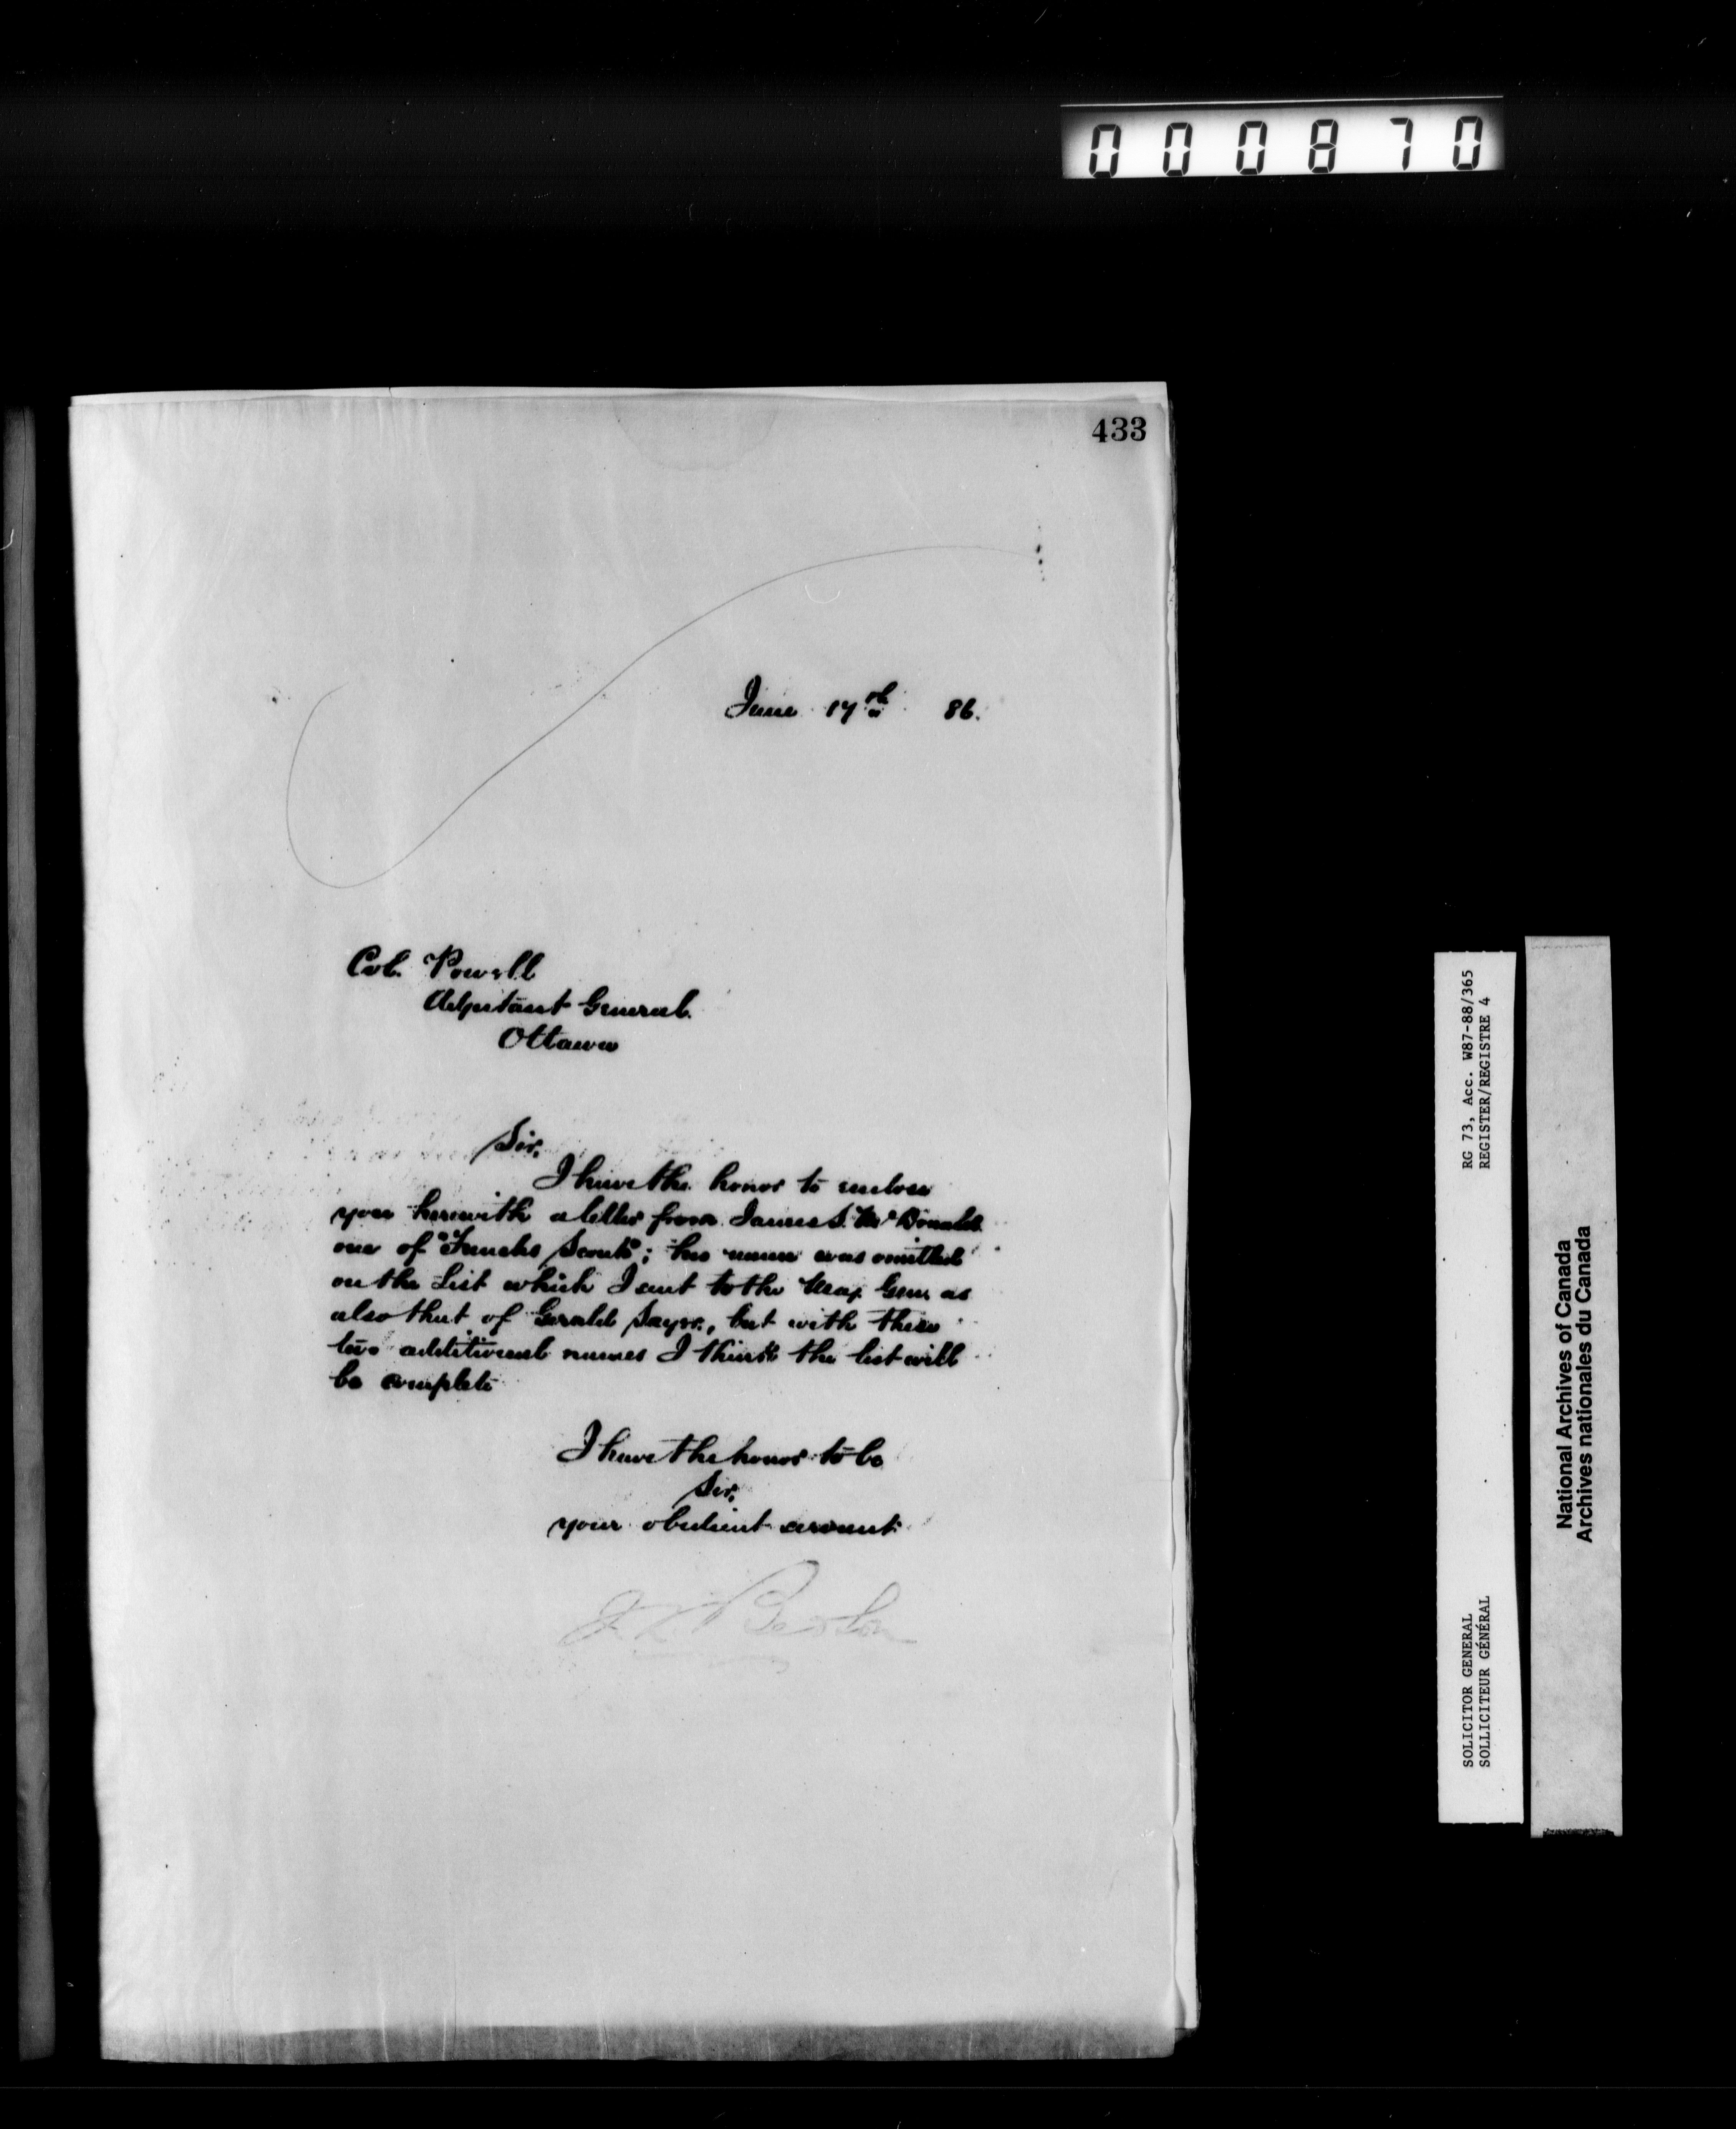 000870
433
June 17th 86.
Col. Powell
Adjutant General.
Ottawa
Sir,
I have the honor to enclose
you herewith a letter from James S. McDonald
one of "French's Scouts"; his name was omitted
on the List which I sent to the Maj. Gen. as
also that of Gerald Sayer, but with these
two additional names I think the list will
be complete
I have the honor to be
Sir,
your obedient servant
RG 73, Acc. W87-88/365
REGISTER/REGISTRE 4
SOLICITOR GENERAL
SOLLICITEUR GÉNÉRAL
National Archives of Canada
Archives nationales du Canada